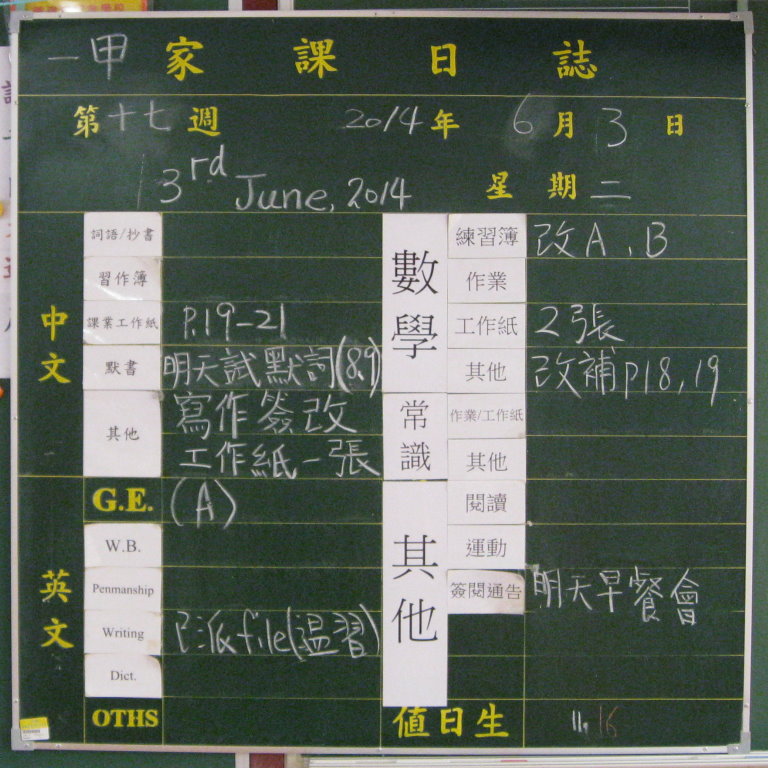 一甲 家課日誌
第十七週 2014年 6月 3日
3rd June, 2014 星期二
中文
詞語/抄書
習作簿
課業工作紙 P.19-21
默書 明天試默詞(8,9)
其他 寫作簽改
工作紙一張
英文
G.E. (A)
W.B.
Penmanship
Writing 已派file(温習)
Dict.
OTHS
數學
練習簿 改A、B
作業
工作紙 2張
其他 改補p18,19
常識
作業/工作紙
其他
其他
閱讀
運動
簽閱通告 明天早餐會
值日生 11, 16